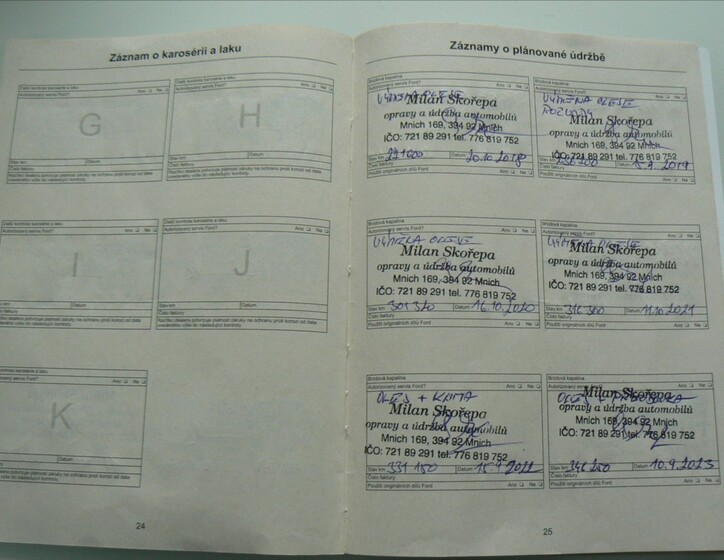 Záznam o karosérii a laku
Další kontrola karosérie a laku
Autorizovaný servis Ford? Ano Ne
G
Stav km Datum
Číslo faktury
Další kontrola karosérie a laku
Autorizovaný servis Ford? Ano Ne
H
Stav km Datum
Číslo faktury
Další kontrola karosérie a laku
Autorizovaný servis Ford? Ano Ne
I
Stav km Datum
Číslo faktury
Další kontrola karosérie a laku
Autorizovaný servis Ford? Ano Ne
J
Stav km Datum
Číslo faktury
Ano Ne
K
Datum
24
Záznamy o plánované údržbě
Brzdová kapalina
Autorizovaný servis Ford? Ano Ne
VÝMĚNA OLEJE
Milan Skořepa
opravy a údržba automobilů
Mnich 169, 394 92 Mnich
IČO: 721 89 291 tel. 776 819 752
Stav km Datum 20.10.2018
Číslo faktury
Použití originálních dílů Ford Ano Ne
Brzdová kapalina
Autorizovaný servis Ford? Ano Ne
VÝMĚNA OLEJE
ROZVODY
Milan Skořepa
opravy a údržba automobilů
Mnich 169, 394 92 Mnich
IČO: 721 89 291 tel. 776 819 752
Číslo faktury
Použití originálních dílů Ford Ano Ne
Brzdová kapalina
Autorizovaný servis Ford? Ano Ne
VÝMĚNA OLEJE
Milan Skořepa
opravy a údržba automobilů
Mnich 169, 394 92 Mnich
IČO: 721 89 291 tel. 776 819 752
Stav km 301 320 Datum 16.10.2020
Číslo faktury
Použití originálních dílů Ford Ano Ne
Brzdová kapalina
Autorizovaný servis Ford? Ano Ne
VÝMĚNA OLEJE
Milan Skořepa
opravy a údržba automobilů
Mnich 169, 394 92 Mnich
IČO: 721 89 291 tel. 776 819 752
Stav km 316 300 Datum 11.10.2021
Číslo faktury
Použití originálních dílů Ford Ano Ne
Brzdová kapalina
Autorizovaný servis Ford? Ano Ne
OLEJ + KLIMA
Milan Skořepa
opravy a údržba automobilů
Mnich 169, 394 92 Mnich
IČO: 721 89 291 tel. 776 819 752
Stav km 331 150 Datum 15.9.2022
Číslo faktury
Použití originálních dílů Ford Ano Ne
Brzdová kapalina
Autorizovaný servis Ford? Ano Ne
OLEJ +
Milan Skořepa
opravy a údržba automobilů
Mnich 169, 394 92 Mnich
IČO: 721 89 291 tel. 776 819 752
Stav km 346 250 Datum 10.9.2023
Číslo faktury
Použití originálních dílů Ford Ano Ne
25